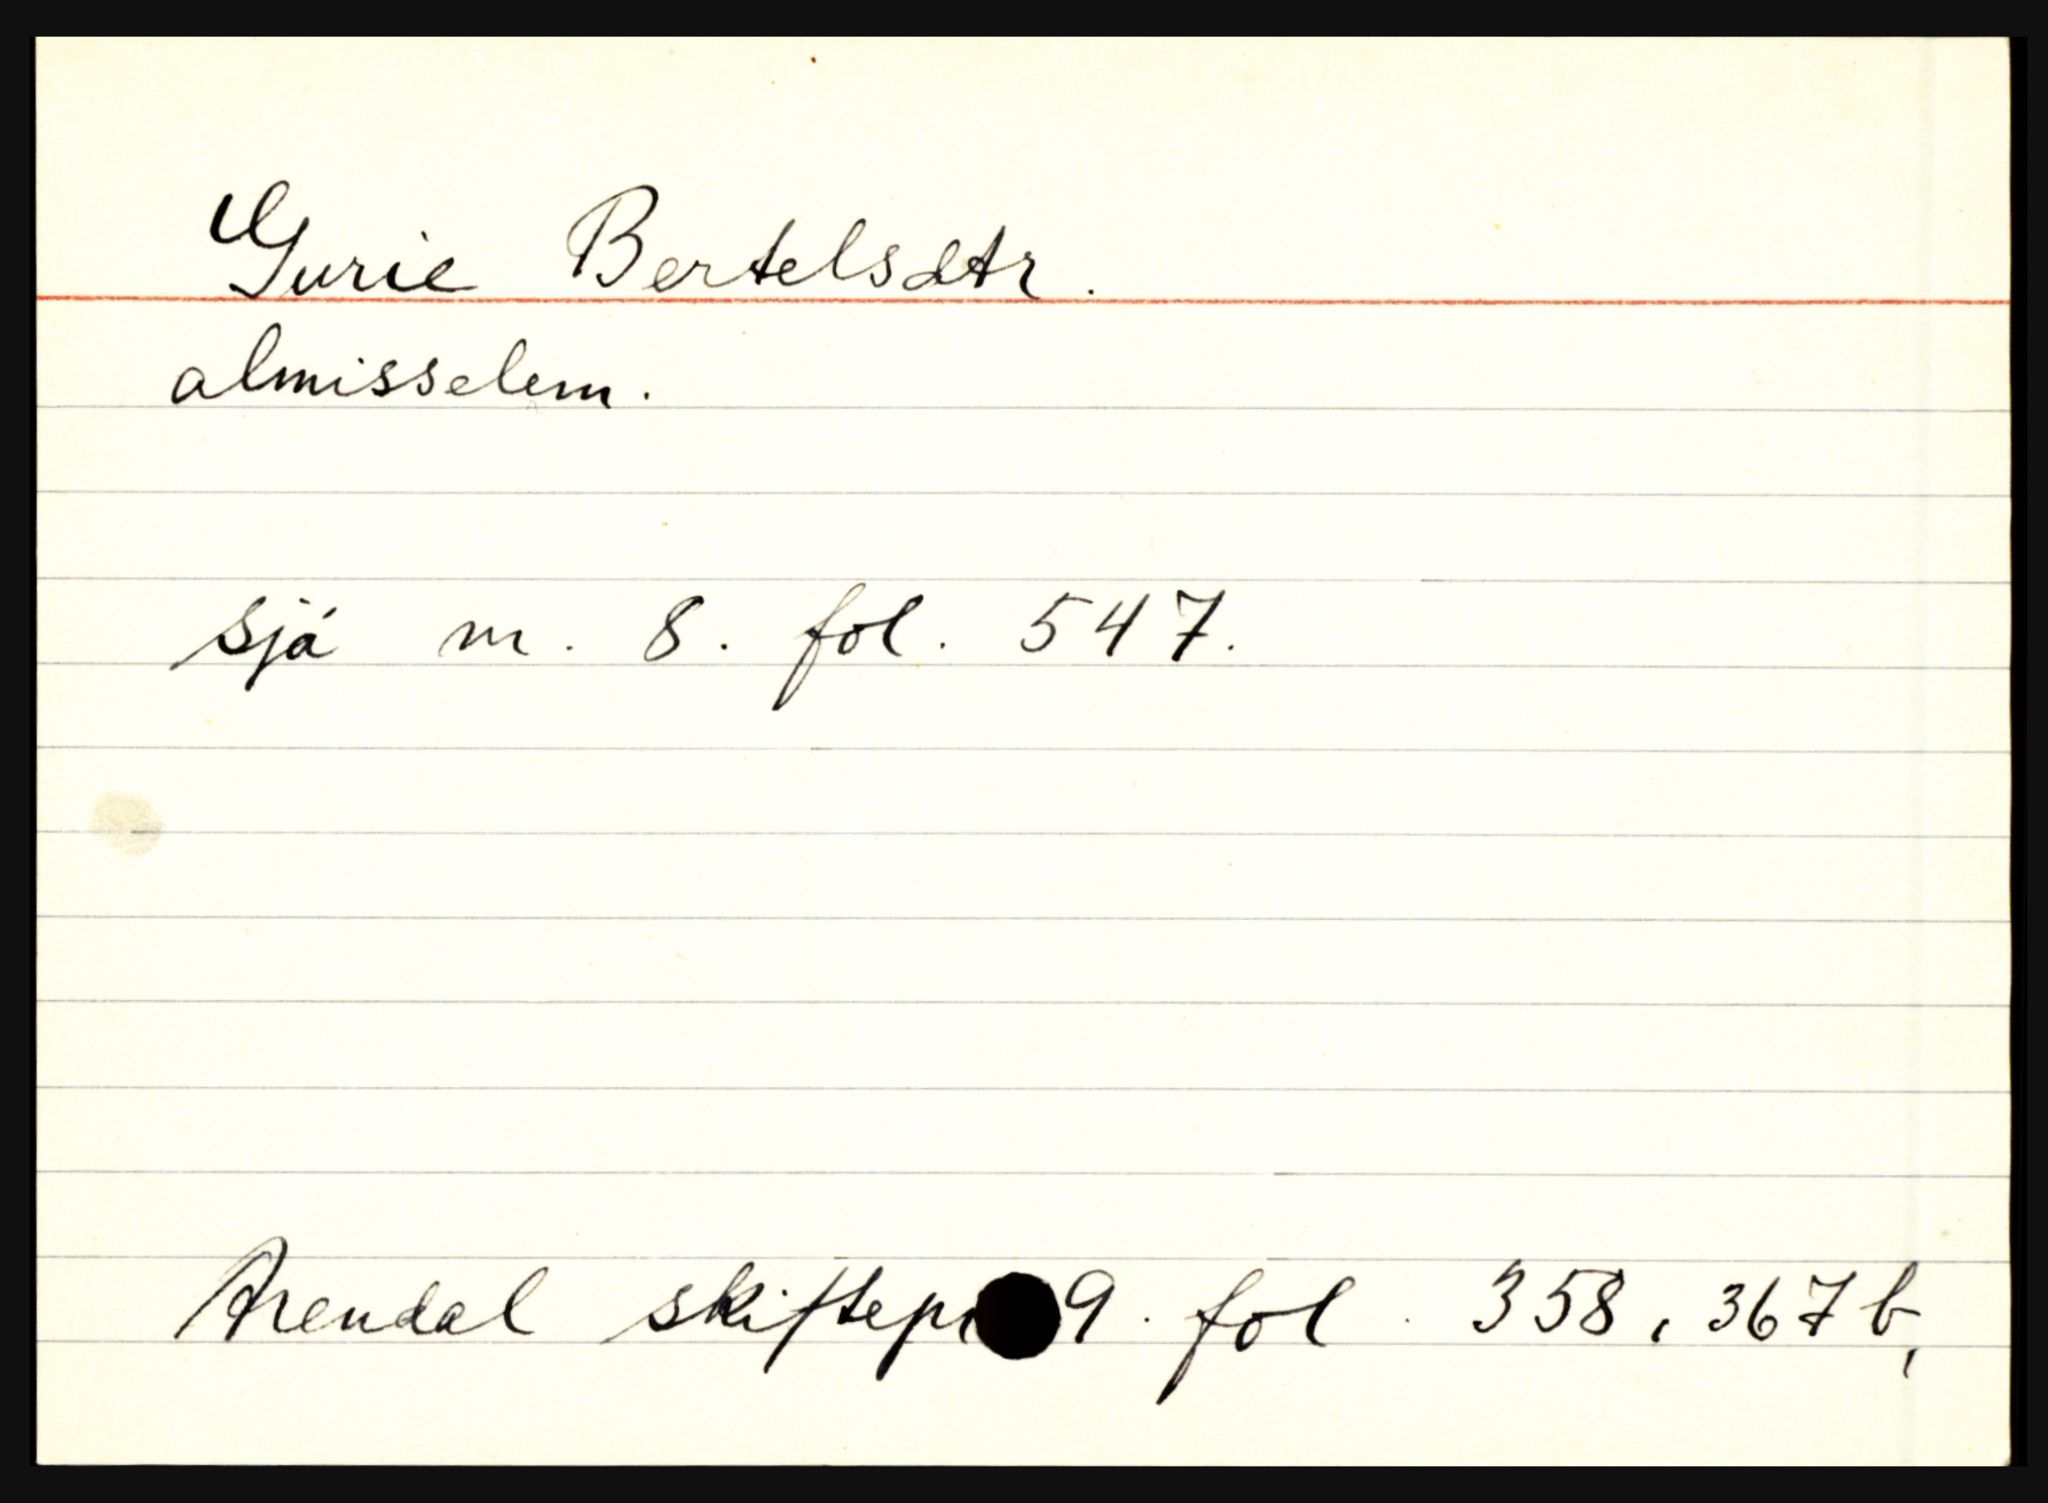 Gurie Bertelsdtr.
almisselem.
sjå m. 8. fol. 547.
Arendal skiftepr 9. fol. 358, 367b,